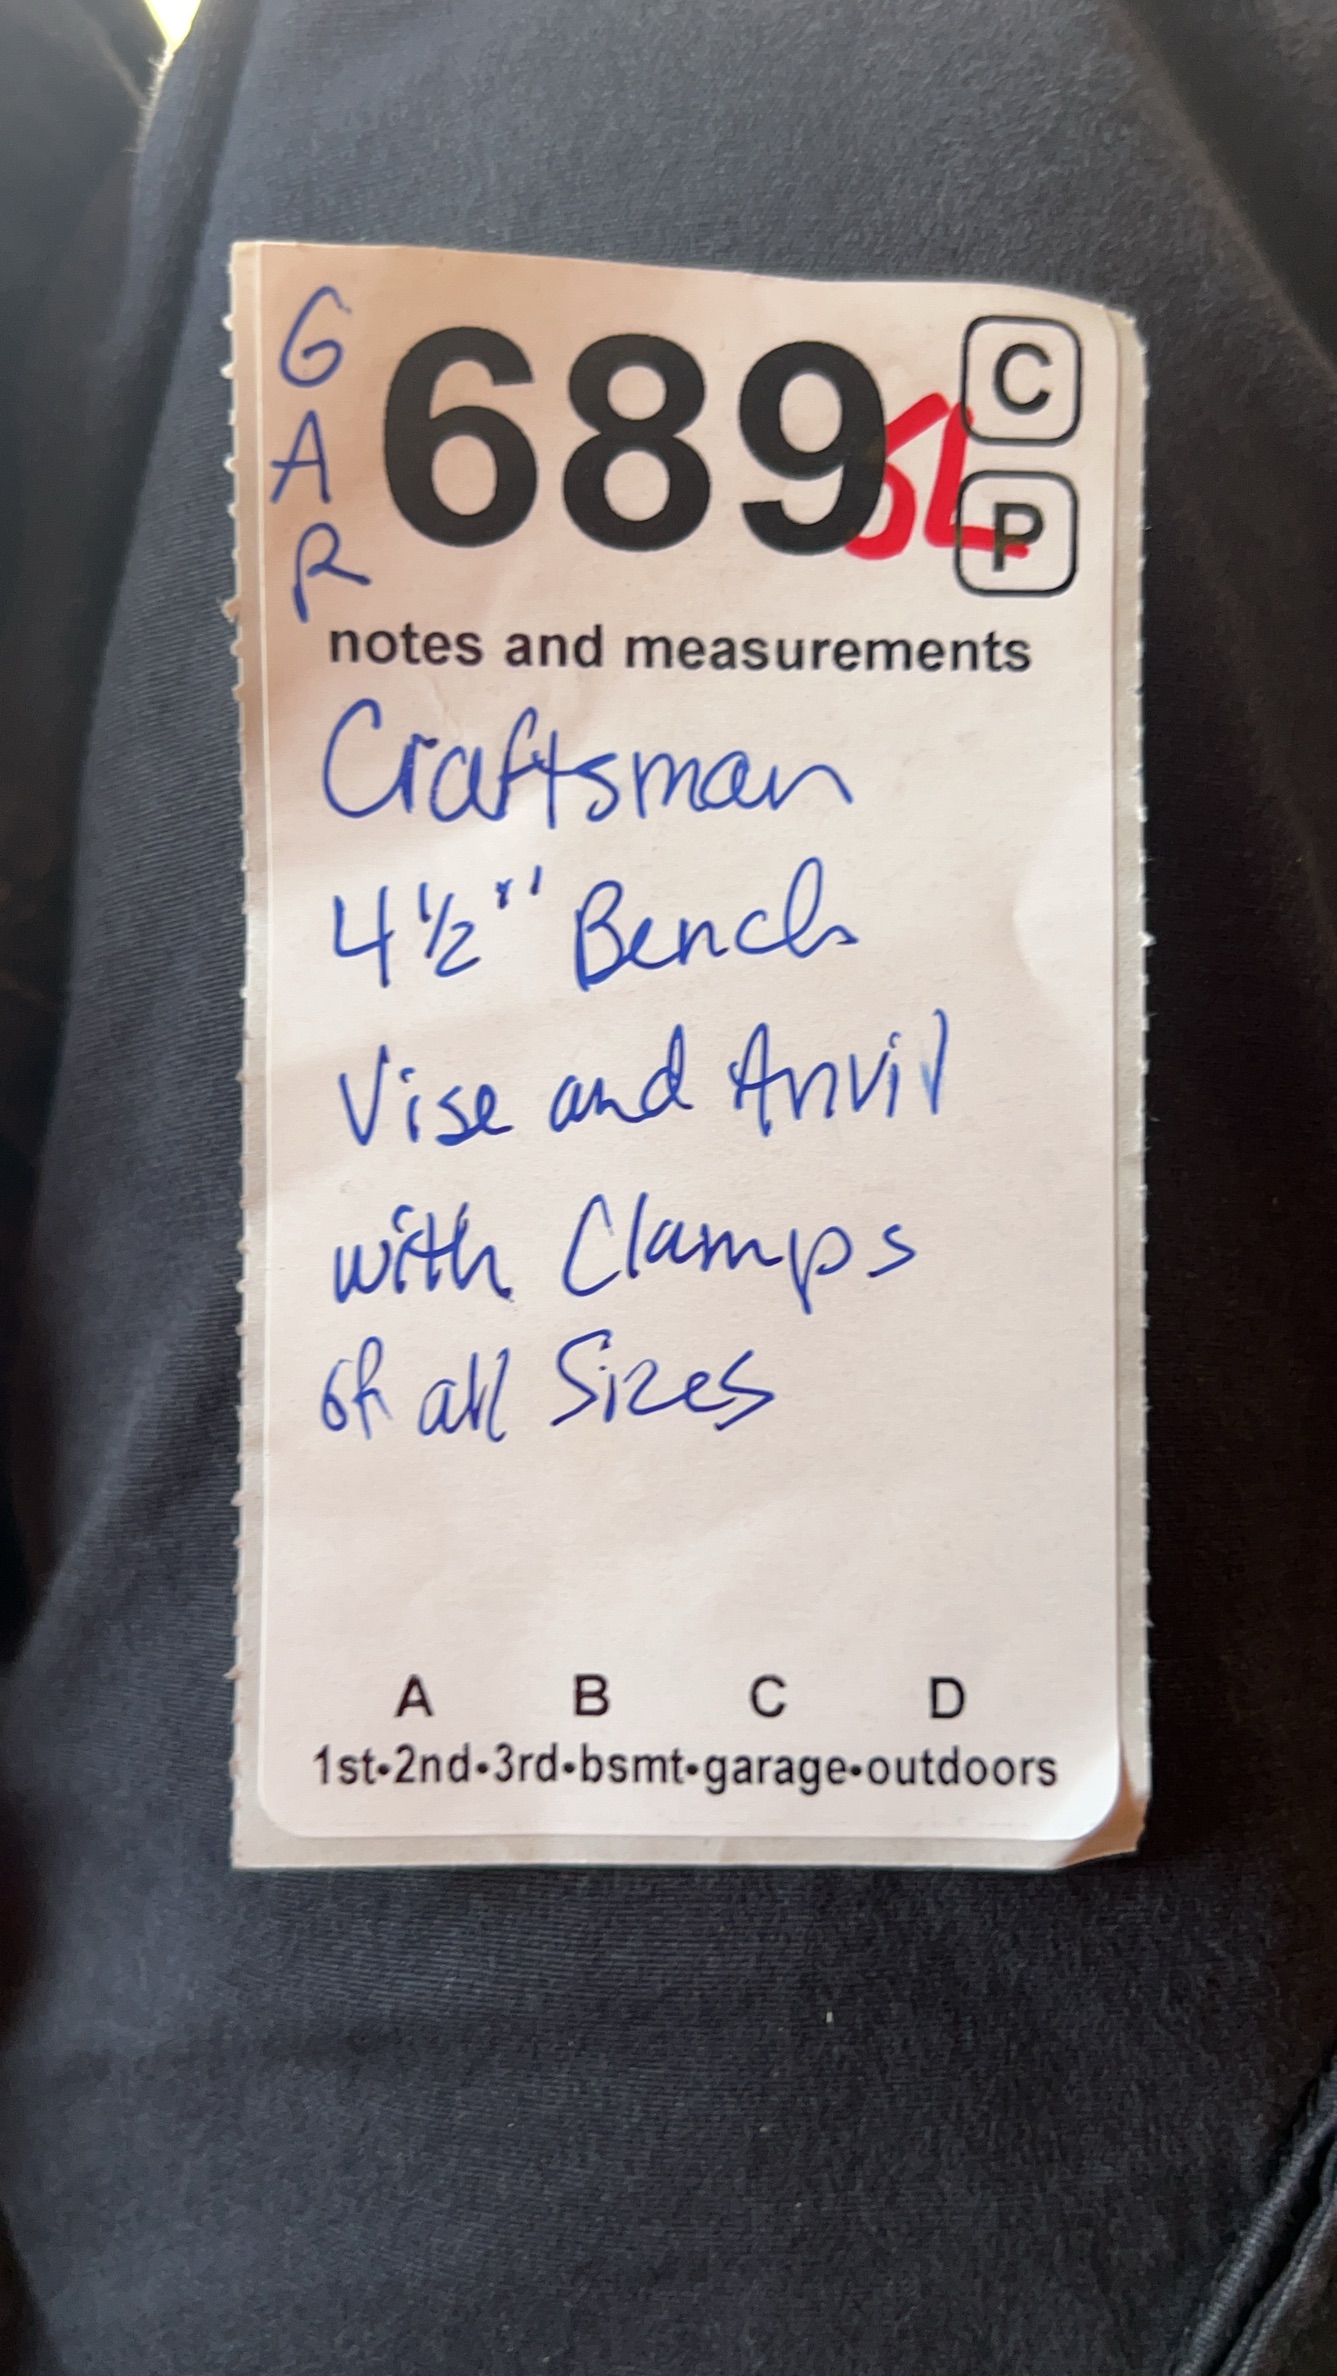 GAR
689
SL
C
P
notes and measurements
Craftsman
4½" Bench
Vise and Anvil
with Clamps
of all Sizes
A B C D
1st•2nd•3rd•bsmt•garage•outdoors